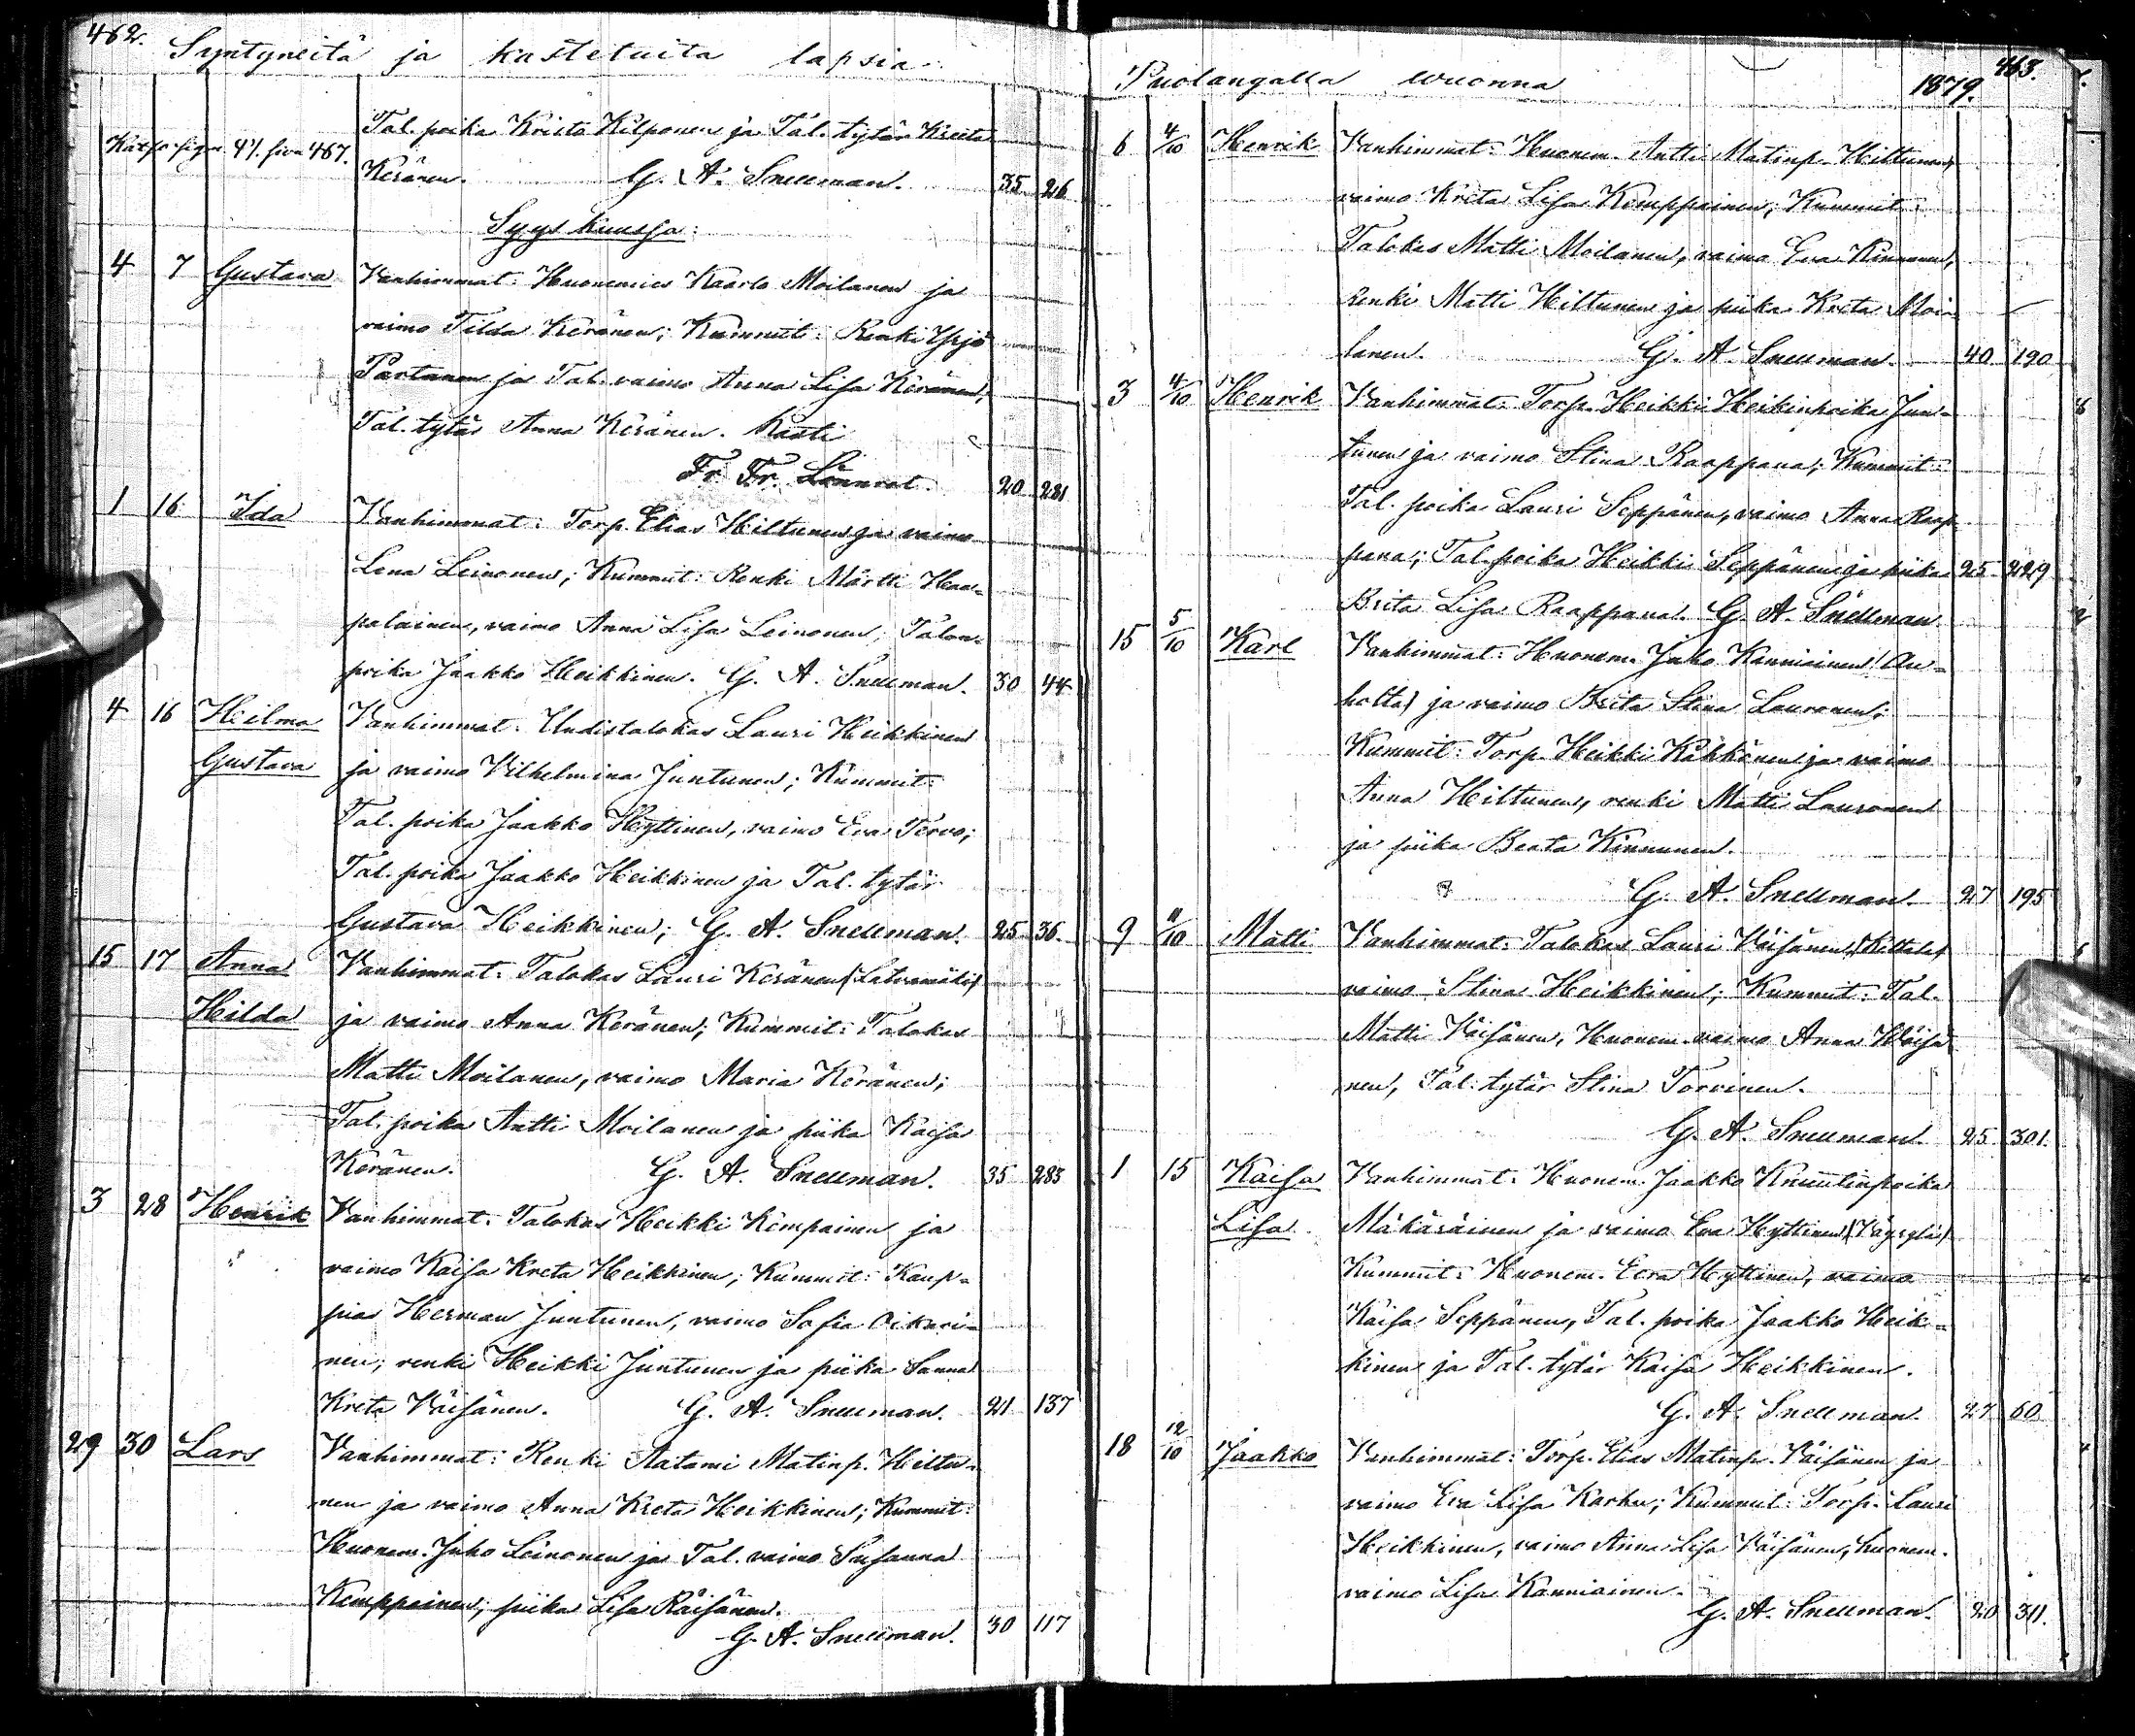 462.
Syntyneitä ja kastetuita lapsia
Tal. poika Krista Kilponen ja Tal. tytär Kreeta
siva 467.
Keränen. G. A. Snellman. 35 26
Syyskuussa:
4 7 Gustava Vanhimmat: Huonemies Kaarlo Moilanen ja
vaimo Tilda Keränen; Kummit: Renki Yrjö
Partanen ja Tal. vaimo Anna Lisa Keränen,
Tal. tytär Anna Keränen. Kasti
Fr. Fr. Lönnrot. 20 281
1 16 Ida Vanhimmat: Torp. Elias Hiltunen ja vaimo
Lena Leinonen; Kummit: Renki Martti Haa-
palainen, vaimo Anna Lisa Leinonen; Talon-
poika Jaakko Heikkinen. G. A. Snellman. 30 44
4 16 Heilma Vanhimmat: Uudistalokas Lauri Heikkinen
Gustava ja vaimo Vilhelmina Juntunen; Kummit:
Tal. poika Jaakko Hyttinen, vaimo Eva Tervo;
Tal. poika Jaakko Heikkinen ja Tal. tytär
Gustava Heikkinen; G. A. Snellman. 25 36.
15 17 Anna Vanhimmat: Talokas Lauri Keränen (Latvamäki)
Hilda ja vaimo Anna Keränen; Kummit: Talokas
Matti Moilanen, vaimo Maria Keränen;
Tal. poika Antti Moilanen ja piika Kaisa
Keränen. G. A. Snellman. 35 283
3 28 Henrik Vanhimmat: Talokas Heikki Kempainen ja
vaimo Kaisa Kreta Heikkinen; Kummit: Kaup-
pias Herman Juntunen, vaimo Sofia Oikari-
nen; renki Heikki Juntunen ja piika Sanna
Kreta Väisänen. G. A. Snellman. 21 137
29 30 Lars Vanhimmat: Renki Aatami Matinp. Hiltu-
nen ja vaimo Anna Kreta Heikkinen; Kummit:
Huonem. Juho Leinonen ja Tal. vaimo Susanna
Kemppainen; piika Lisa Räisänen.
G. A. Snellman. 30 117
463.
Puolangalla wuonna 1879.
6 4/10 Henrik Vanhimmat: Huonem. Antti Matinp. Hiltunen,
vaimo Kreta Lisa Kemppainen; Kummit:
Talokas Matti Moilanen, vaimo Eva Kinnunen,
Renki Matti Hiltunen ja piika Kreta Moi-
lanen. G. A. Snellman. 40 190
3 4/10 Henrik Vanhimmat: Torp. Heikki Heikinpoika Jun-
tunen ja vaimo Stina Raappana; Kummit:
Tal. poika Lauri Seppänen, vaimo Anna Raap-
pana; Tal. poika Heikki Seppänen ja piika 25 229
Brita Lisa Raappana. G. A. Snellman
15 5/10 Karl Vanhimmat: Huonem. Juho Kanniainen (Au-
holta) ja vaimo Brita Stina Lauronen;
Kummit: Torp. Heikki Kähkönen ja vaimo
Anna Hiltunen, renki Matti Lauronen
ja piika Beata Kinnunen.
G. A. Snellman. 27 195
9 11/10 Matti Vanhimmat: Talokas Lauri Väisänen
vaimo Stina Heikkinen; Kummit: Tal.
Matti Väisänen, Huonem. vaimo Anna Väisä-
nen, Tal. tytär Stina Torvinen.
G. A. Snellman. 25 301.
1 15 Kaisa Vanhimmat: Huonem. Jaakko Knuutinpoika
Lisa. Mäkäräinen ja vaimo Eva Hyttinen
Kummit: Huonem. Eera Hyttinen, vaimo
Kaisa Seppänen, Tal. poika Jaakko Heik-
kinen ja Tal. tytär Kaisa Heikkinen.
G. A. Snellman. 27 60
18 12/10 Jaakko Vanhimmat: Torp. Elias Matinp. Väisänen ja
vaimo Eva Lisa Karhu; Kummit: Torp. Lauri
Heikkinen, vaimo Anna Lisa Väisänen, huonem.
vaimo Lisa Kanniainen.
G. A. Snellman. 20 311.